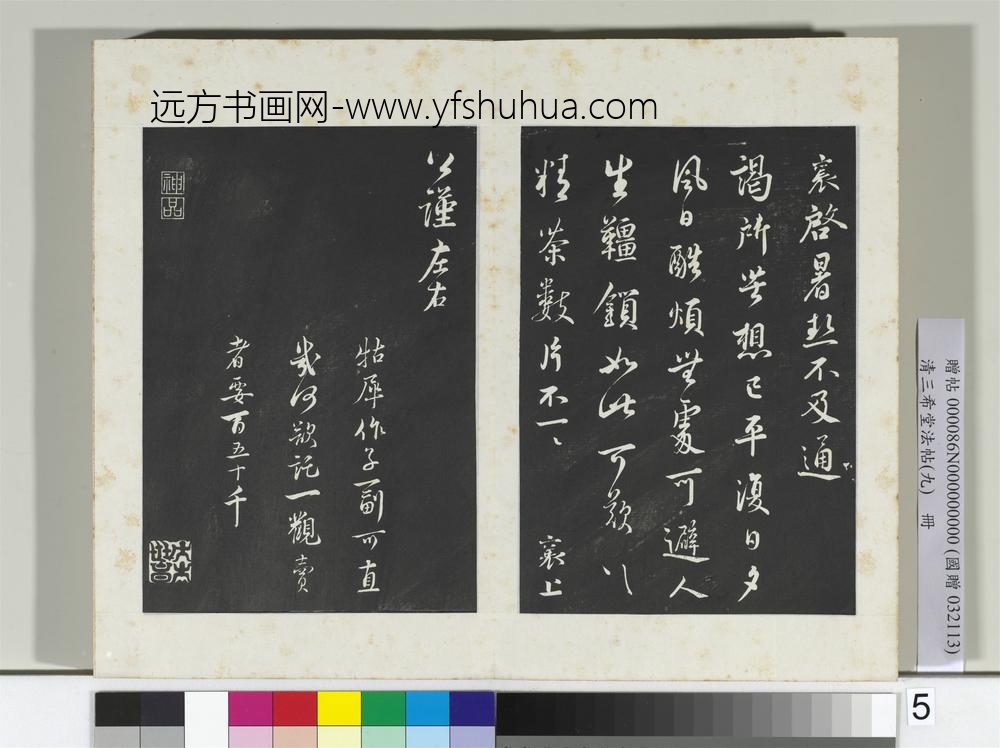 远方书画网-www.yfshuhua.com
襄啓暑热不及通
謁所苦想已平復日夕
風日酷煩無處可避人
生韁鎖如此可歎
精茶數片不一一
襄上
公謹左右
牯犀作子一副可直
幾何欲託一觀賣
者要百五十千
神品
贈帖 000086N000000000 (國贈 032113)
清三希堂法帖(九) 冊
5